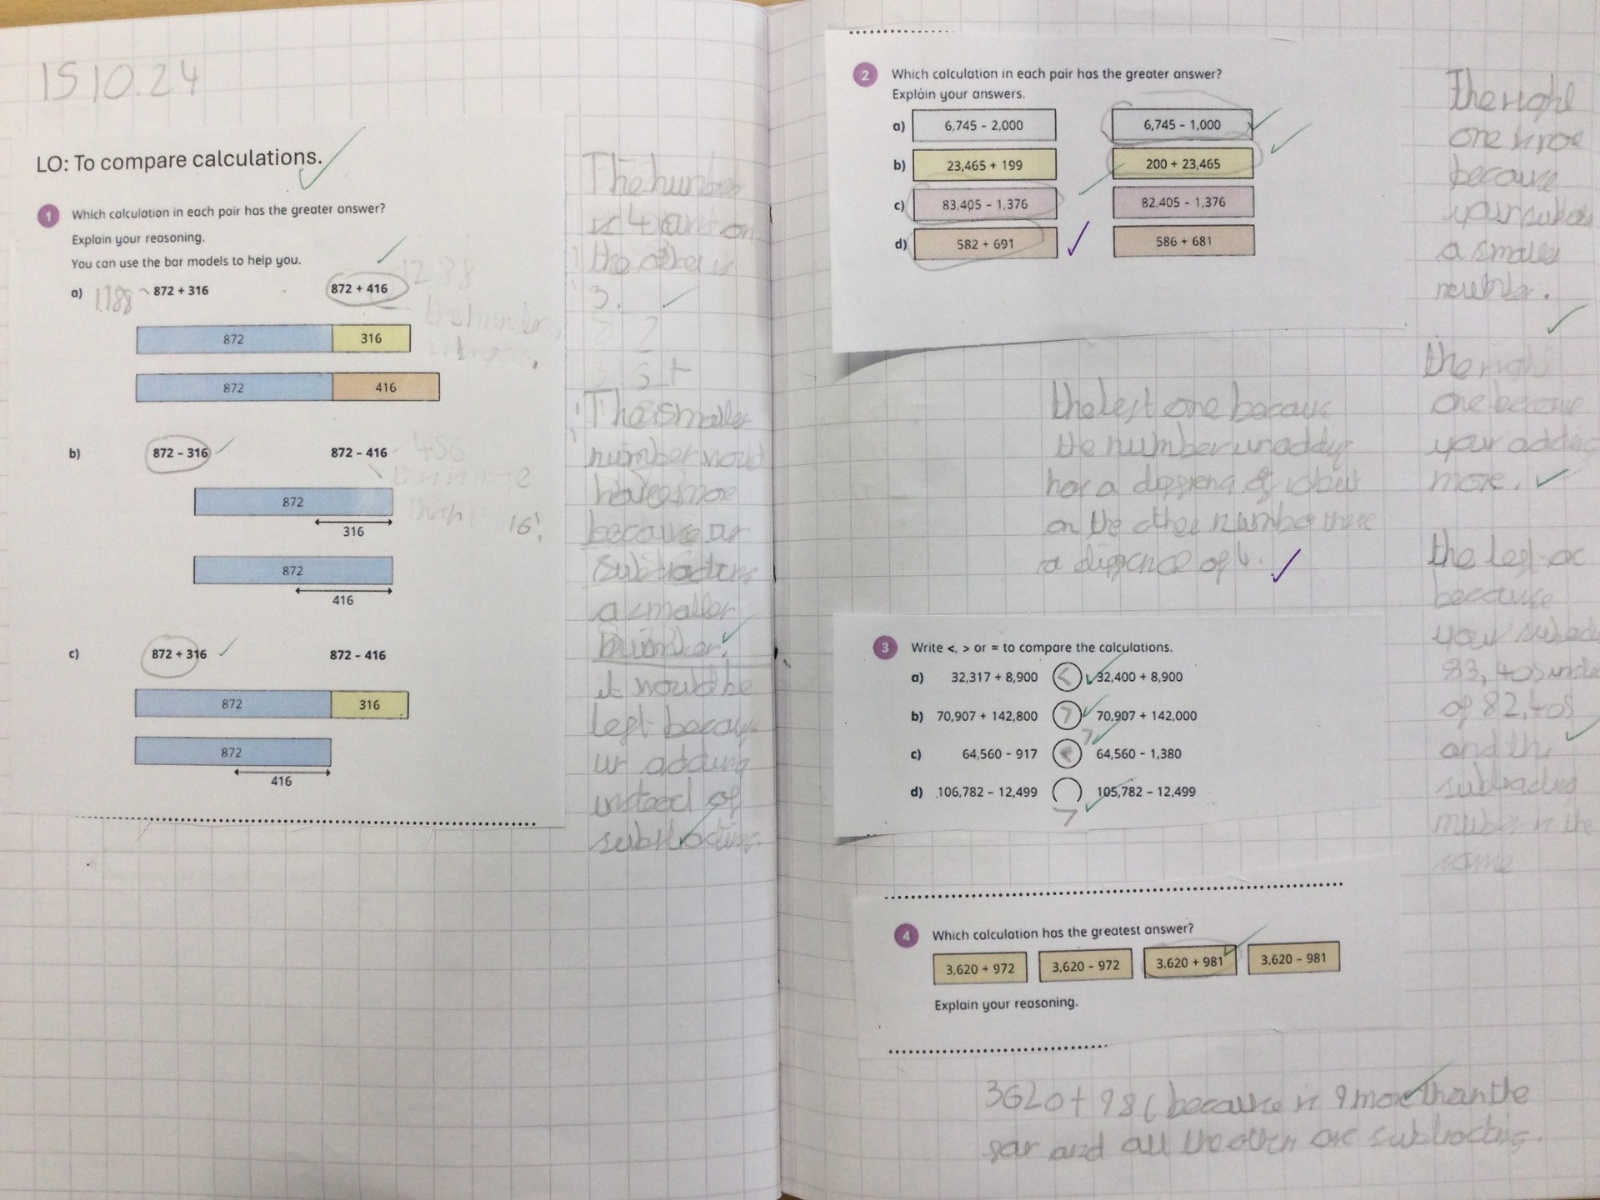 15 10.24
LO: To compare calculations.
1 Which calculation in each pair has the greater answer?
Explain your reasoning.
You can use the bar models to help you.
a) 1,188 872 + 316 872 + 416 1288
872 316
872 416
b) 872 - 316 872 - 416 456
872
316
872
416
16!
c) 872 + 316 872 - 416
872 316
872
416
The
is 4 and on
the other is
3.
The smaller
number would
have more
because ur
subtracting
a smaller
number.
it would be
left because
ur adding
instead of
subtracting.
2 Which calculation in each pair has the greater answer?
Explain your answers.
a) 6,745 - 2,000 6,745 - 1,000
b) 23,465 + 199 200 + 23,465
c) 83,405 - 1,376 82,405 - 1,376
d) 582 + 691 586 + 681
The right
one
because
your
a smaller
number.
the right
one because
your adding
more.
the left
because
your
83,405
of 82,405
and the
subtracting
is the
same
the left one because
the number ur adding
has a of 10 but
on the other number there
a of 4.
3 Write <, > or = to compare the calculations.
a) 32,317 + 8,900 < 32,400 + 8,900
b) 70,907 + 142,800 > 70,907 + 142,000
c) 64,560 - 917 > 64,560 - 1,380
d) 106,782 - 12,499 > 105,782 - 12,499
4 Which calculation has the greatest answer?
3,620 + 972 3,620 - 972 3,620 + 981 3,620 - 981
Explain your reasoning.
3620 + 981 because is 9 more than the
and all the others are subtracting.